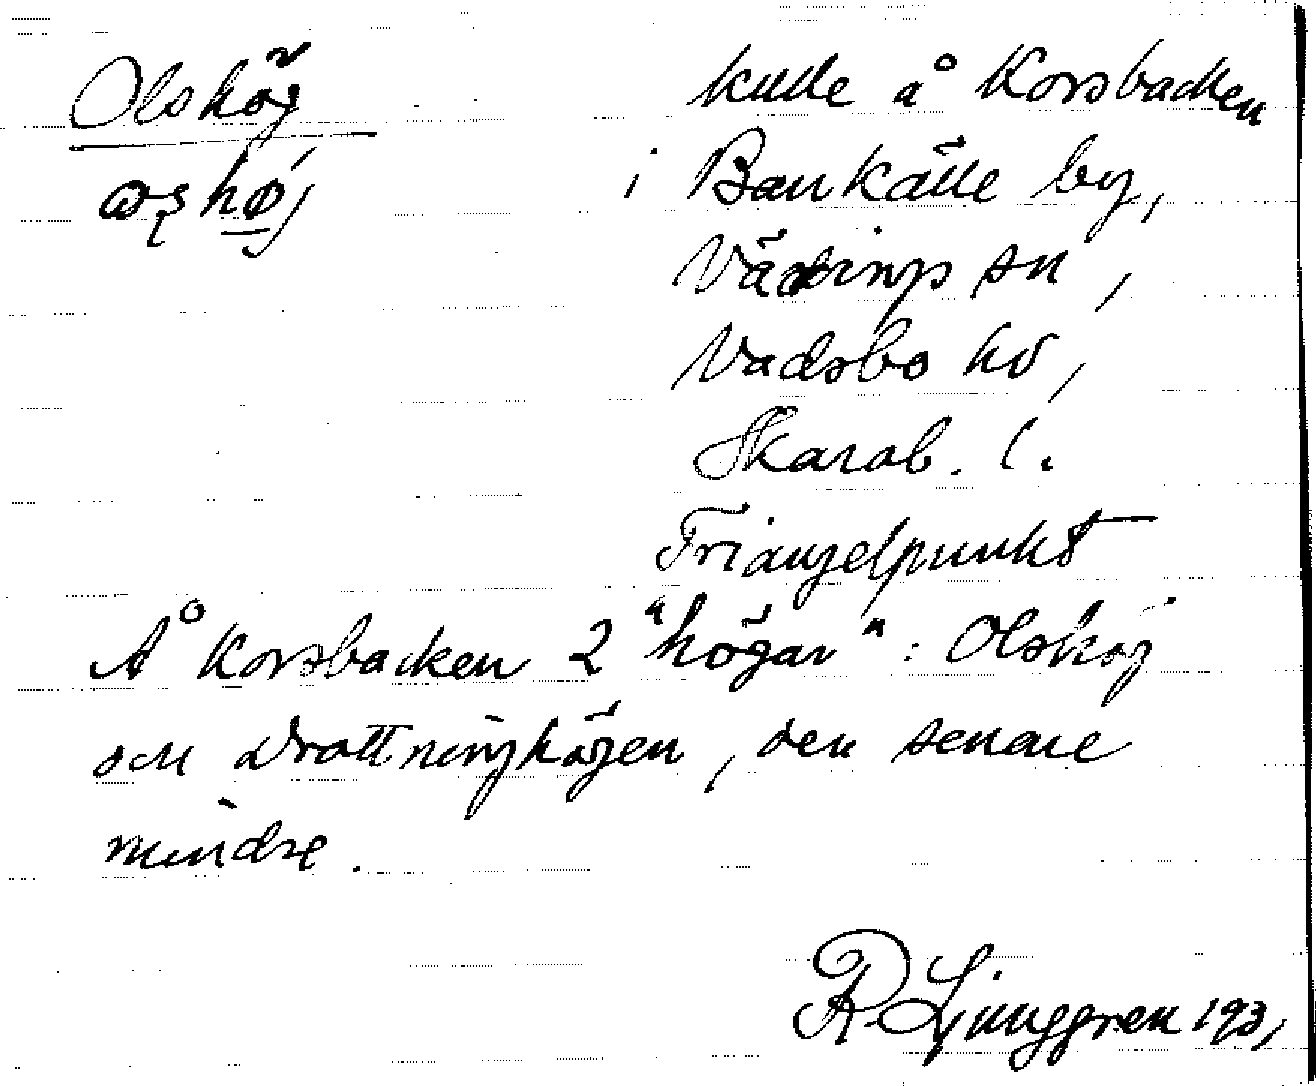 Olshög kulle å Korsbacken
i Bankälle by,
Väsings sn,
Vadsbo hd,
Skarab. l.
Triangelpunkt
Å Korsbacken 2 "högar": Olshög
och Drottninghögen, den senare
mindre.
R. Ljunggren 1931